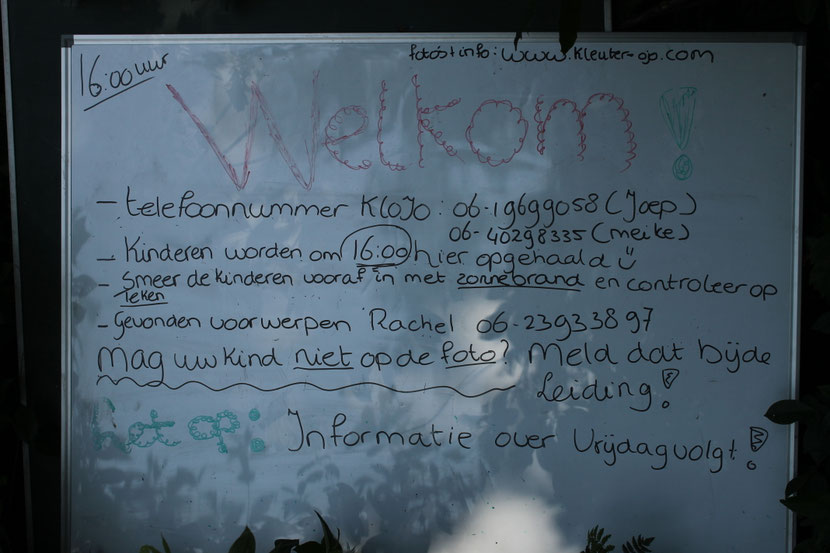 16:00 uur
foto's + info: www.kleuter-ojo.com
Welkom!
- telefoonnummer KloJo: 06-19699058 (Joep)
06-40298335 (meike)
- Kinderen worden om 16:00 hier opgehaald
- Smeer de kinderen vooraf in met zonnebrand en controleer op
teken
- Gevonden voorwerpen Rachel 06-23933897
Mag uw kind niet op de foto? Meld dat bij de
Leiding!
Let op: Informatie over Vrijdag volgt!